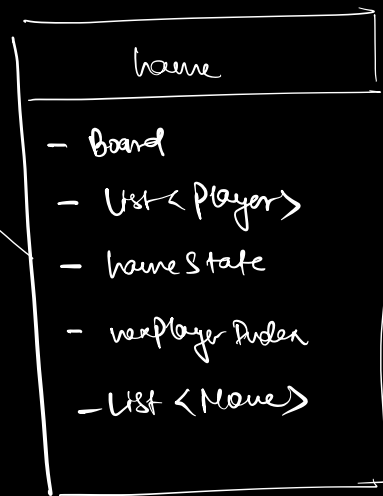 Game
- Board
- List<Player>
- GameState
- nexPlayerIndex
- List <Move>